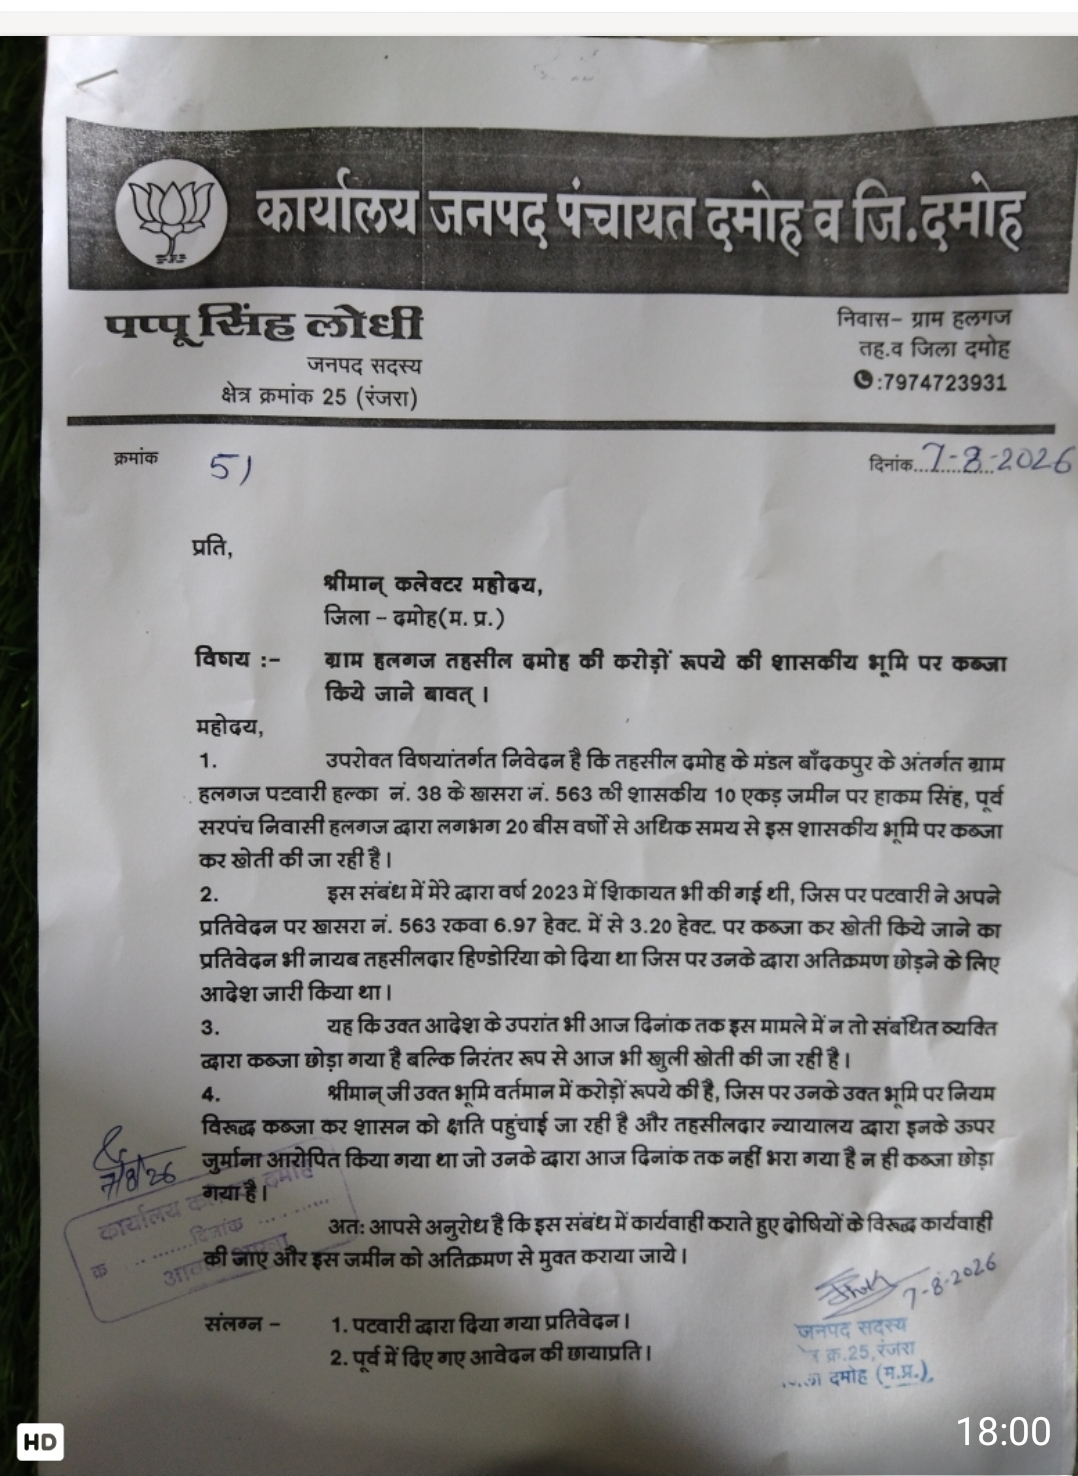 कार्यालय जनपद पंचायत दमोह व जि.दमोह
पप्पू सिंह लोधी
जनपद सदस्य
क्षेत्र क्रमांक 25 (रंजरा)
निवास- ग्राम हलगज
तह.व जिला दमोह
:7974723931
क्रमांक 51
दिनांक 7-8-2026
प्रति,
श्रीमान् कलेक्टर महोदय,
जिला – दमोह(म. प्र.)
विषय :- ग्राम हलगज तहसील दमोह की करोड़ों रूपये की शासकीय भूमि पर कब्जा
किये जाने बावत् ।
महोदय,
1. उपरोक्त विषयांतर्गत निवेदन है कि तहसील दमोह के मंडल बाँदकपुर के अंतर्गत ग्राम
हलगज पटवारी हल्का नं. 38 के खासरा नं. 563 की शासकीय 10 एकड़ जमीन पर हाकम सिंह, पूर्व
सरपंच निवासी हलगज द्वारा लगभग 20 बीस वर्षों से अधिक समय से इस शासकीय भूमि पर कब्जा
कर खेती की जा रही है।
2. इस संबंध में मेरे द्वारा वर्ष 2023 में शिकायत भी की गई थी, जिस पर पटवारी ने अपने
प्रतिवेदन पर खासरा नं. 563 रकवा 6.97 हेक्ट. में से 3.20 हेक्ट. पर कब्जा कर खेती किये जाने का
प्रतिवेदन भी नायब तहसीलदार हिण्डोरिया को दिया था जिस पर उनके द्वारा अतिक्रमण छोड़ने के लिए
आदेश जारी किया था।
3. यह कि उक्त आदेश के उपरांत भी आज दिनांक तक इस मामले में न तो संबंधित व्यक्ति
द्वारा कब्जा छोड़ा गया है बल्कि निरंतर रूप से आज भी खुली खेती की जा रही है।
4. श्रीमान् जी उक्त भूमि वर्तमान में करोड़ों रूपये की है, जिस पर उनके उक्त भूमि पर नियम
विरूद्ध कब्जा कर शासन को क्षति पहुंचाई जा रही है और तहसीलदार न्यायालय द्वारा इनके ऊपर
जुर्माना आरोपित किया गया था जो उनके द्वारा आज दिनांक तक नहीं भरा गया है न ही कब्जा छोड़ा
गया है।
7/8/26
कार्यालय दमोह
दिनांक
क्र
अत: आपसे अनुरोध है कि इस संबंध में कार्यवाही कराते हुए दोषियों के विरूद्ध कार्यवाही
की जाए और इस जमीन को अतिक्रमण से मुक्त कराया जाये।
7-8-2026
जनपद सदस्य
क्र.25, रंजरा
दमोह (म.प्र.)
संलग्न – 1. पटवारी द्वारा दिया गया प्रतिवेदन।
2. पूर्व में दिए गए आवेदन की छायाप्रति।
HD
18:00